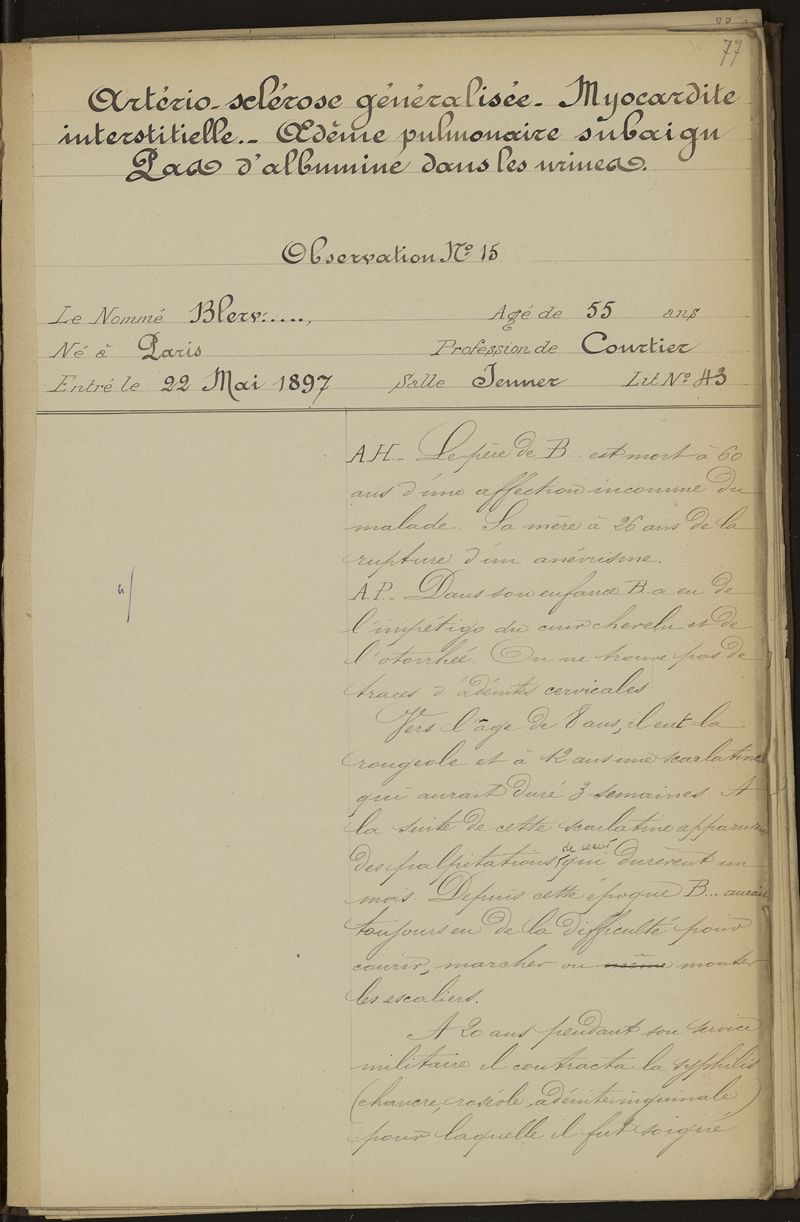 77
Artério-sclérose généralisée. Myocardite
interstitielle. Œdème pulmonaire subaigu
Pas d'albumine dans les urines.
Observation No 15
Le Nommé Blerv.....,
Agé de 55 ans
Né à Paris
Profession de Courtier
Entré le 22 Mai 1897
Salle Jenner
Lit No 43
A.H. Le père de B... est mort à 60
ans d'une affection inconnue du
malade. Sa mère à 26 ans de la
rupture d'un anévrisme.
A.P. Dans son enfance B. a eu de
l'impétigo du cuir chevelu et de
l'otorrhée. On ne trouve pas de
traces d'adénites cervicales
Vers l'âge de 8 ans, il eut la
rougeole et à 12 ans une scarlatine
qui aurait duré 3 semaines. A
la suite de cette scarlatine apparurent
des palpitations de coeur qui durèrent un
mois. Depuis cette époque B... aurait
toujours eu de la difficulté pour
courir, marcher ou même monter
les escaliers.
A 20 ans pendant son service
militaire il contracta la syphilis
(chancre, roséole, adénite inguinale)
pour laquelle il fut soigné